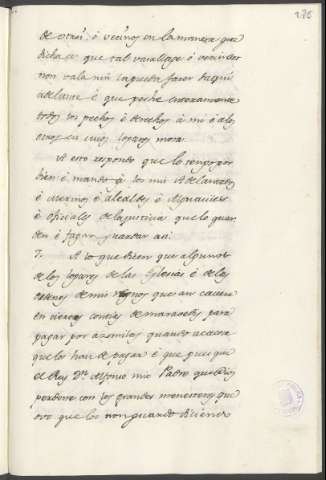 176
de otri, ó vecino en la manera que
dicha es que tal vasallage ó vecindat
non vala nin la pueda facer daqui
adelante é que peche enteramente
todos los pechos é derechos á mi é a los
otros en cuios logares mora:
A esto respondo que lo tengo por
bien é mando á los mis Adelantados
é merinos é alcaldes é Alguaciles
é oficiales de la justicia que lo guar
den é fagan guardar asi:
7. A lo que dicen que algunos
de los logares de las Iglesias é de los
ordenes de mis regnos que an
en ciertas contias de maravedis para
pagar por acemilas quando acaece
que los han de pagar é que pues que
el Rey Dn. Alfonso mio Padre que Dios
perdone con los grandes menesteres que
ovo que los non guardo diciendo